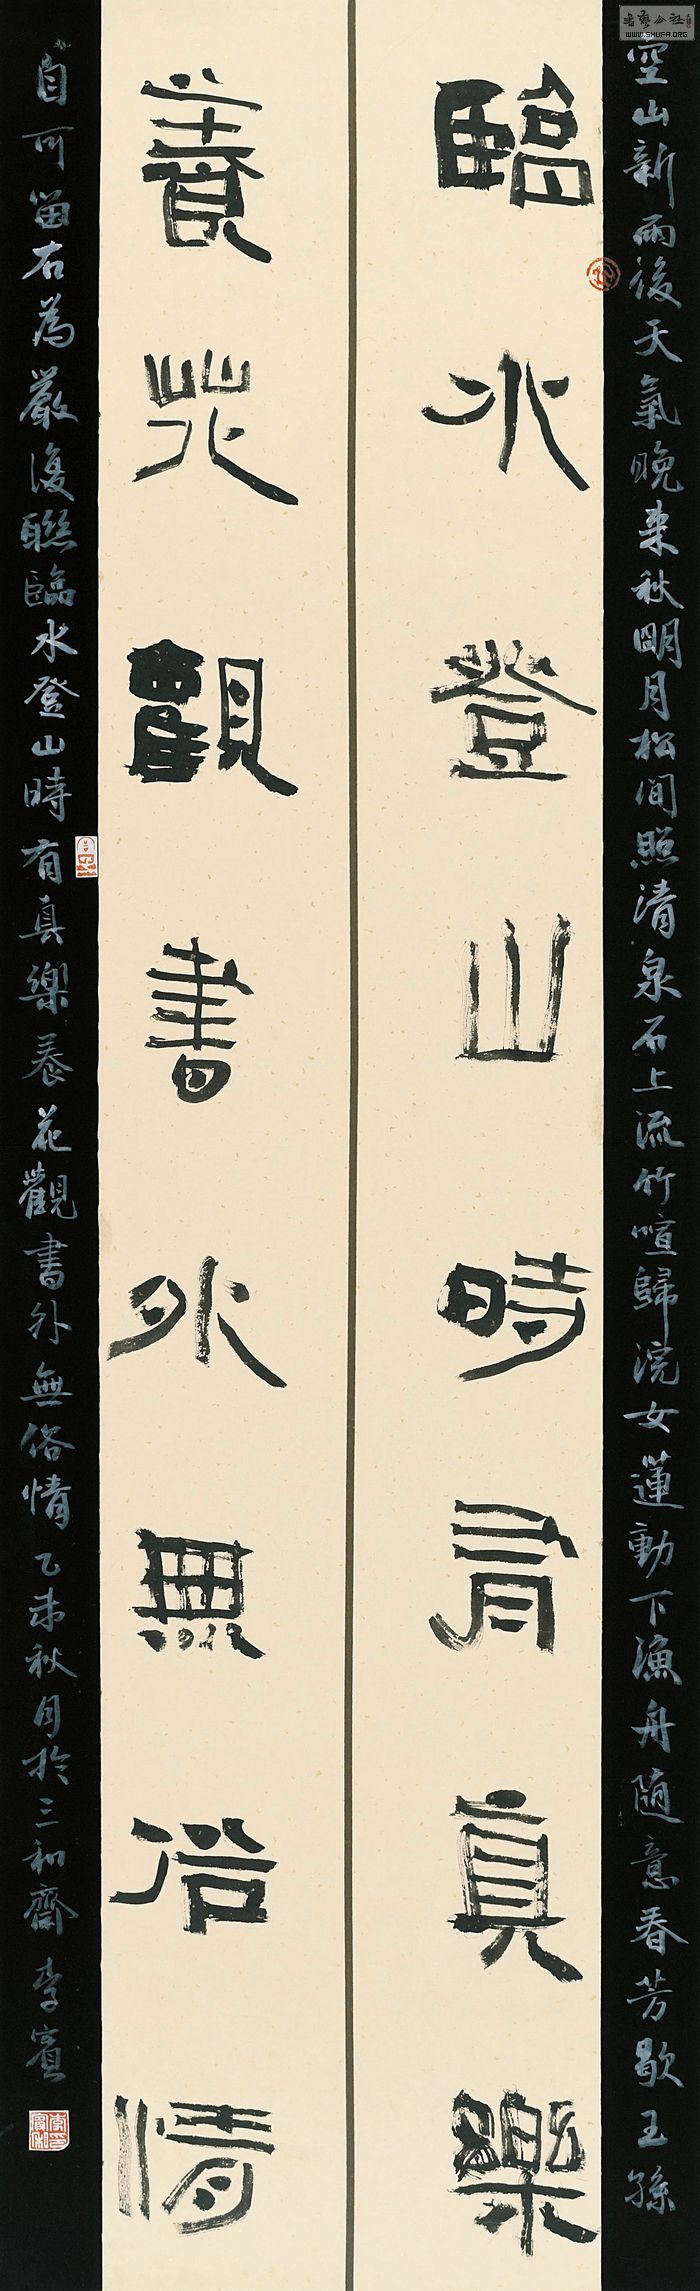 書藝公社
WWW.SHUFA.ORG
空山新雨後天氣晚來秋明月松間照清泉石上流竹喧歸浣女蓮動下漁舟隨意春芳歇王孫
臨水登山時有真樂
養花觀書外無俗情
自可留右為嚴復聯臨水登山時有真樂養花觀書外無俗情乙未秋月於三和齋李賓